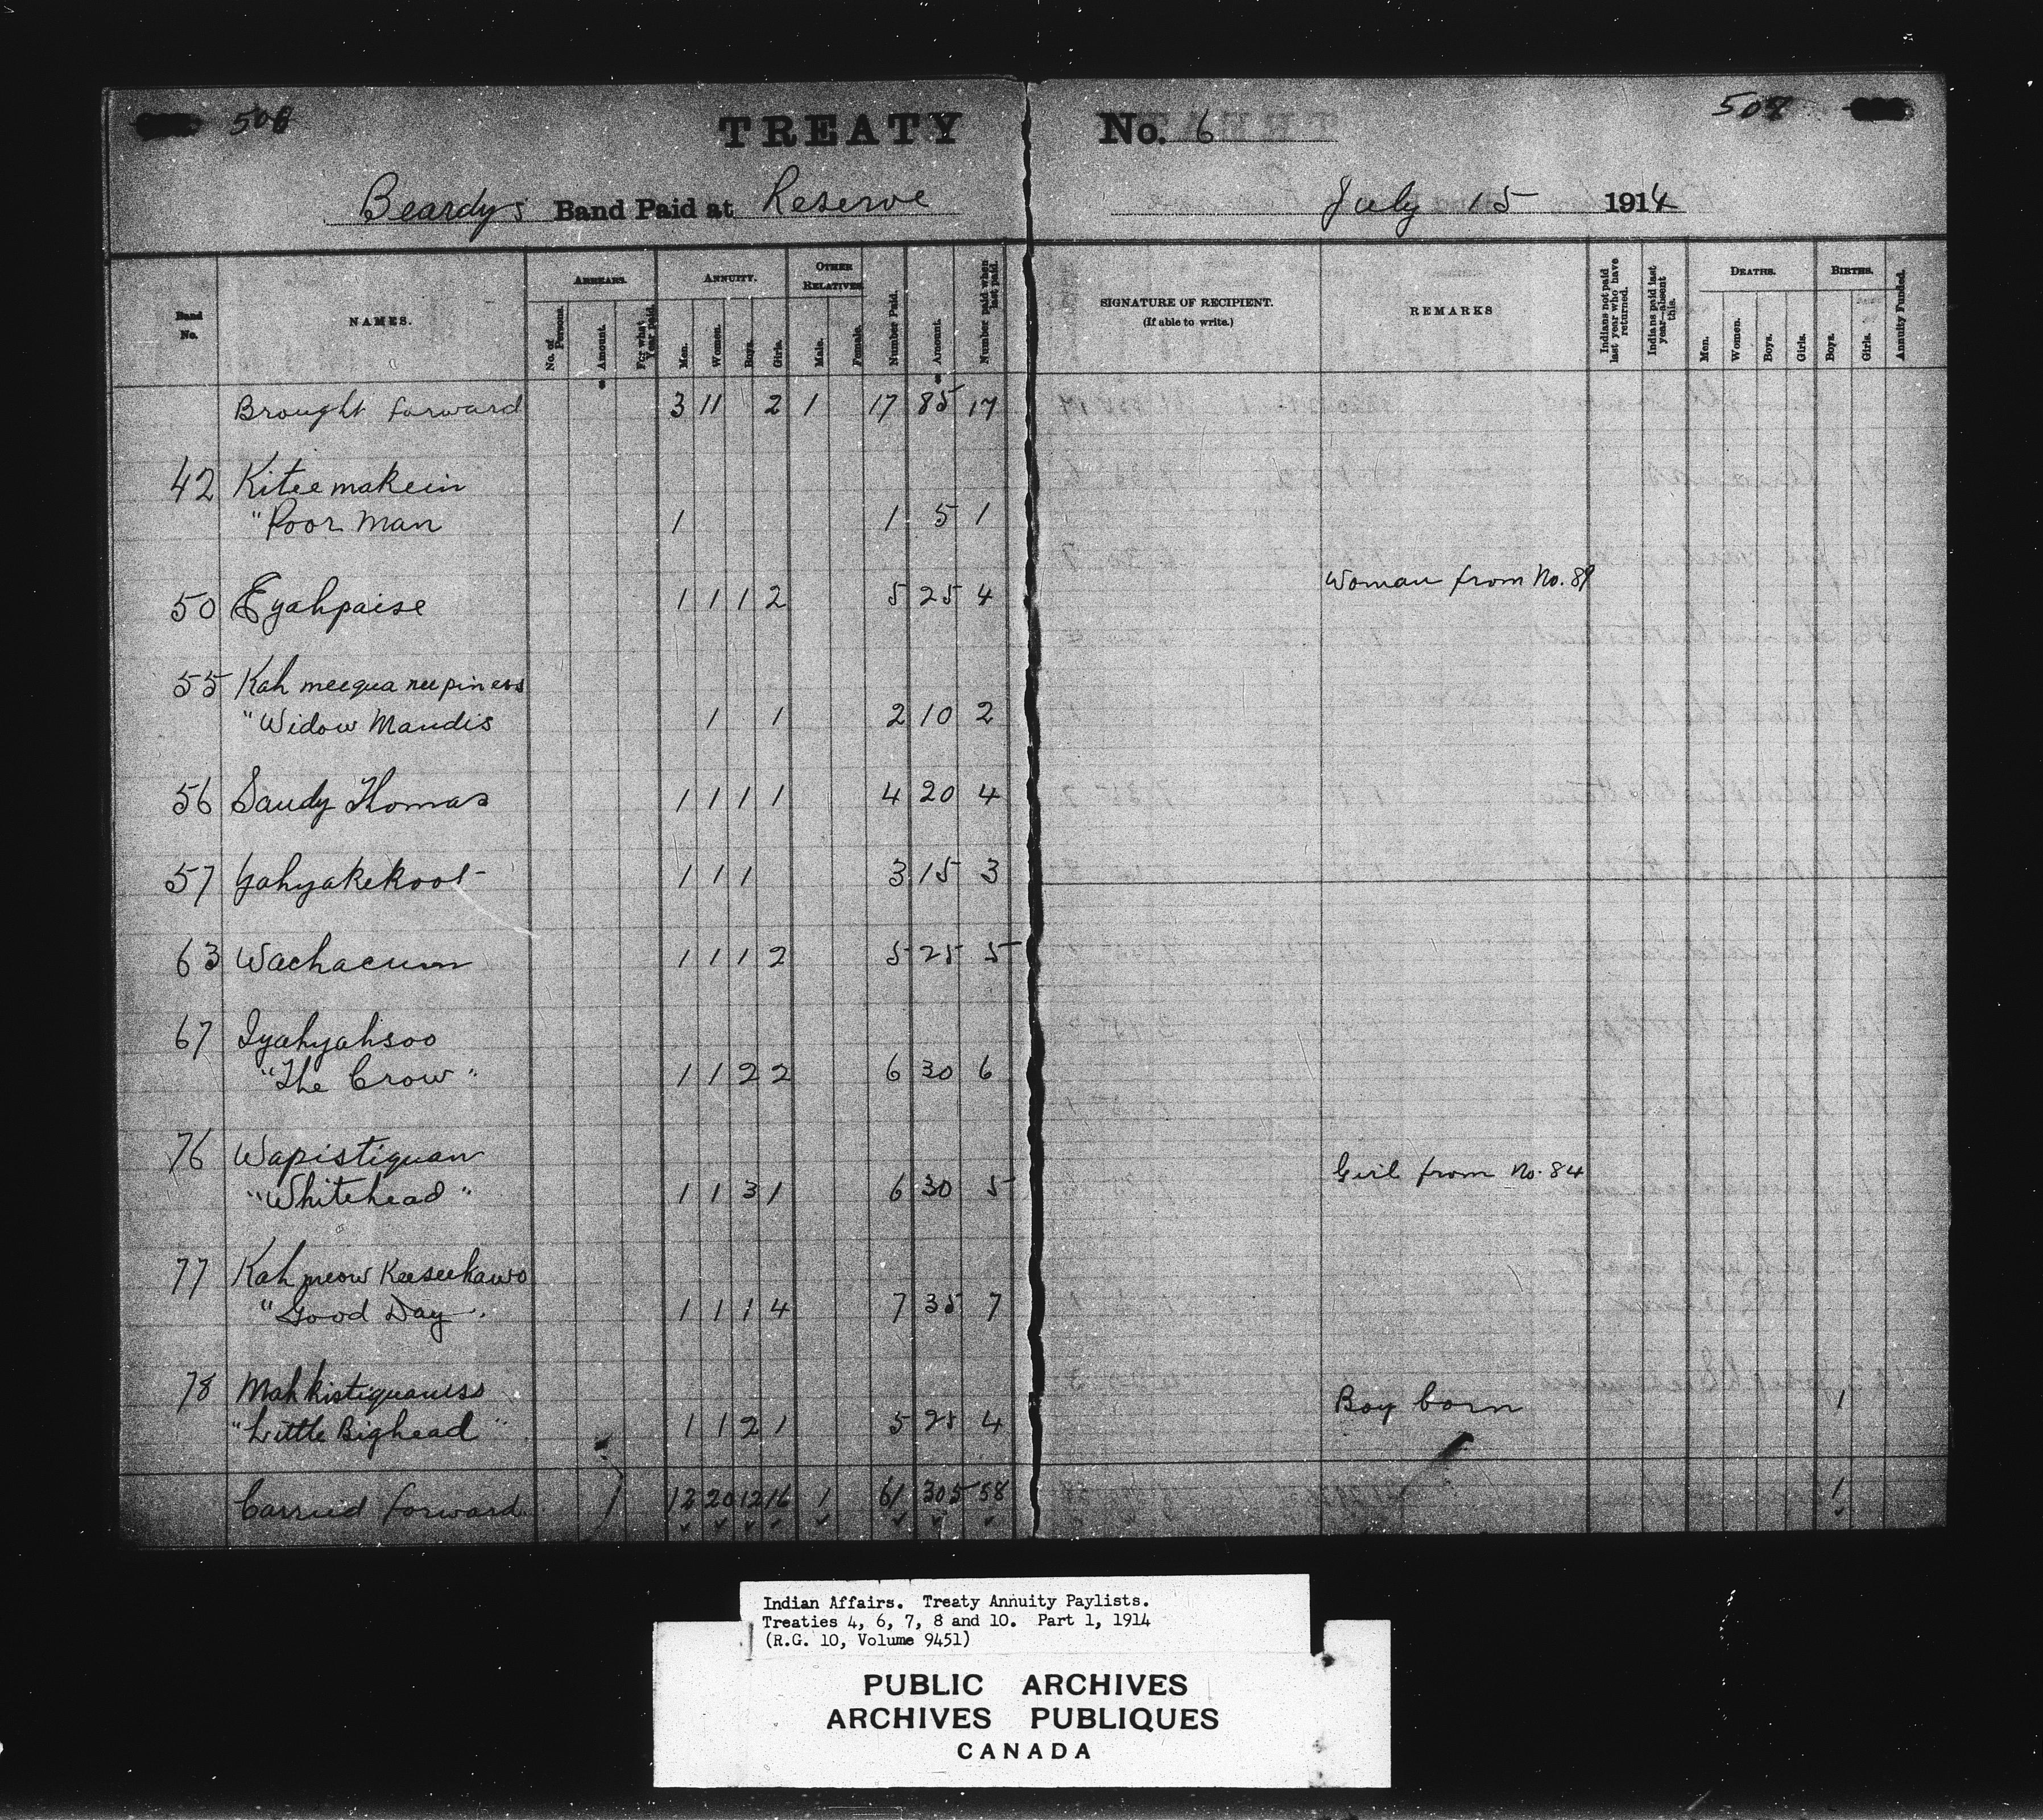 506
507
TREATY No. 6
Beardys Band Paid at Reserve July 15 1914
Band No.
NAMES.
ARREARS.
No. of Persons.
Amount.
For what Year paid.
ANNUITY.
Men.
Women.
Boys.
Girls.
OTHER RELATIVES.
Male.
Female.
Number Paid.
Amount.
Number paid when last paid.
SIGNATURE OF RECIPIENT.
(If able to write.)
REMARKS
Indians not paid last year who have returned.
Indians paid last year—absent this.
DEATHS.
Men.
Women.
Boys.
Girls.
BIRTHS.
Boys.
Girls.
Annuity Funded.
Brought forward 3 11 2 1 17 85 17
42 Kiteemakein
"Poor Man 1 1 5 1
50 Eyahpaise 1 1 1 2 5 25 4 Woman from No. 89
55 Kah meequa neepiness
"Widow Mandis 1 1 2 10 2
56 Sandy Thomas 1 1 1 1 4 20 4
57 Yahyakekoot 1 1 1 3 15 3
63 Wachacum 1 1 1 2 5 25 5
67 Iyahyahsoo
"The Crow" 1 1 2 2 6 30 6
76 Wapistiquan
"Whitehead" 1 1 3 1 6 30 5 Girl from No. 84
77 Kah meow Keeseekawo
"Good Day" 1 1 1 4 7 35 7
78 Mahkistiquaness
"Little Bighead" 1 1 2 1 5 25 4 Boy born 1
Carried forward 12 20 12 16 1 61 305 58 1
Indian Affairs. Treaty Annuity Paylists.
Treaties 4, 6, 7, 8 and 10. Part 1, 1914
(R.G. 10, Volume 9451)
PUBLIC ARCHIVES
ARCHIVES PUBLIQUES
CANADA